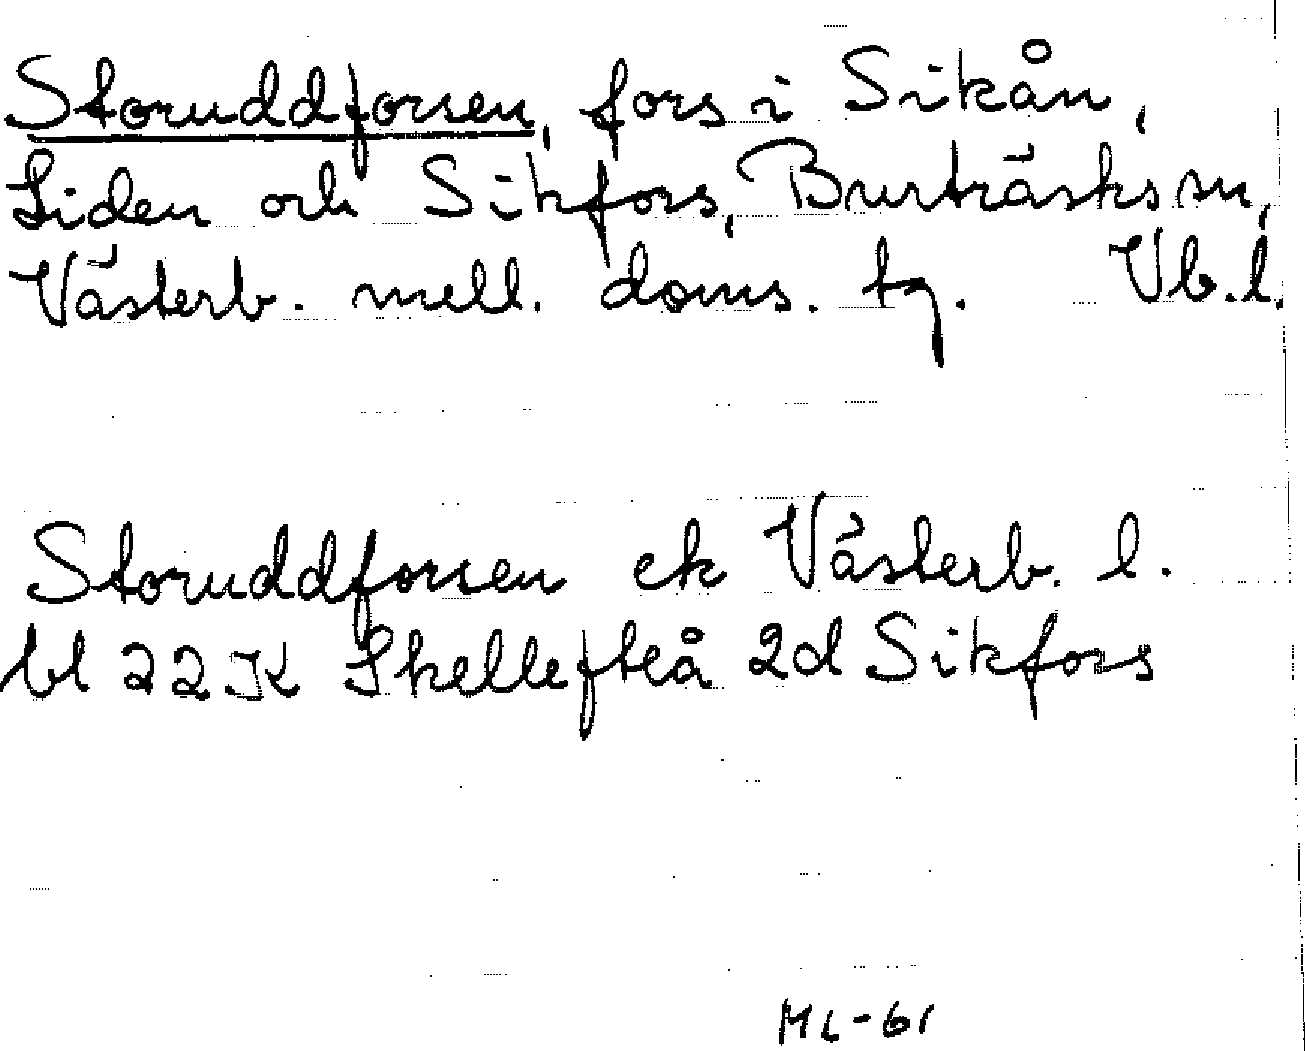 Storuddforsen, fors i Sikån,
Liden och Sikfors, Burträsks sn,
Västerb. mell. doms. tg. Vb.l.
Storuddforsen ek Västerb. l.
bl 22K Skellefteå 2d Sikfors
ML-61